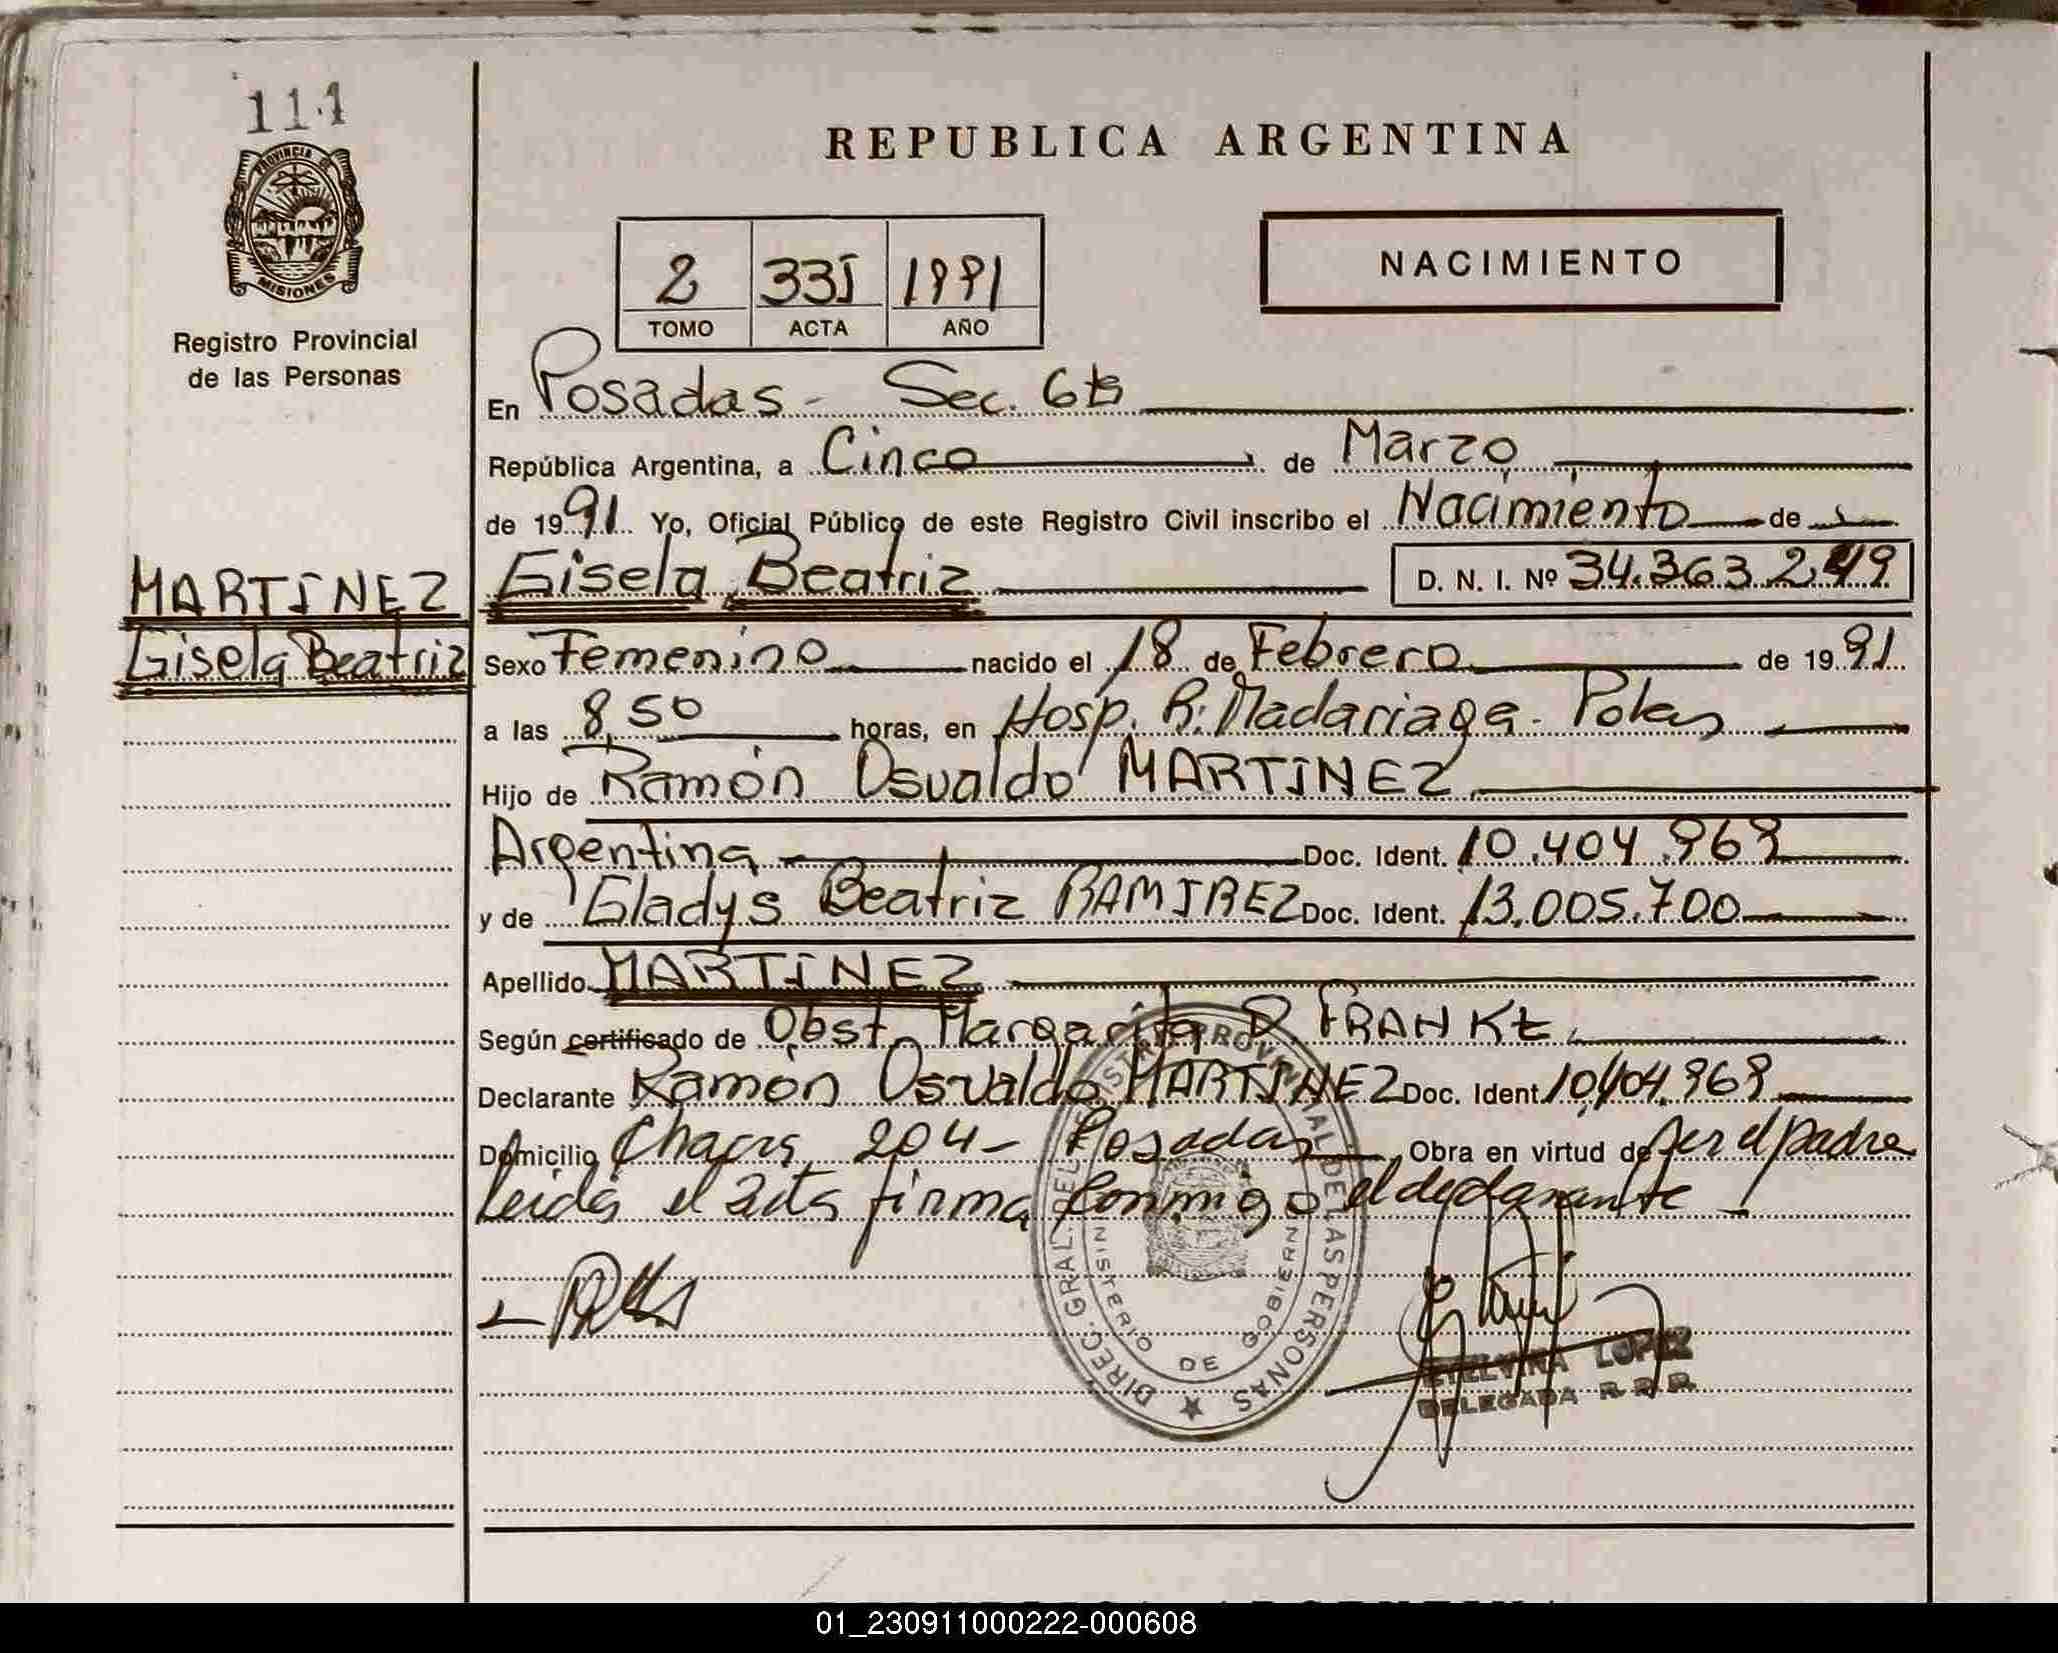 111
PROVINCIA DE
MISIONES
Registro Provincial
de las Personas
MARTINEZ
Gisela Beatriz
REPUBLICA ARGENTINA
2 335 1991
TOMO ACTA AÑO
NACIMIENTO
En Posadas - Sec. 6ta
República Argentina, a Cinco de Marzo
de 1991 Yo, Oficial Público de este Registro Civil inscribo el Nacimiento de
Gisela Beatriz D. N. I. Nº 34.363.249
Sexo Femenino nacido el 18 de Febrero de 1991
a las 8,50 horas, en Hosp. R. Madariaga - Pdas
Hijo de Ramón Osvaldo MARTINEZ
Argentina Doc. Ident. 10.404.969
y de Gladys Beatriz RAMIREZ Doc. Ident. 13.005.700
Apellido MARTINEZ
Según certificado de Obst. Margarita D. FRANKE
Declarante Ramón Osvaldo MARTINEZ Doc. Ident 10.404.969
Domicilio Chacra 204 - Posadas Obra en virtud de ser el padre
Leida el acta firma conmigo el declarante
DIREC. GRAL. DEL REGISTRO PROVINCIAL DE LAS PERSONAS
MINISTERIO DE GOBIERNO
ETELVINA LOPEZ
DELEGADA R.P.P.
01_230911000222-000608